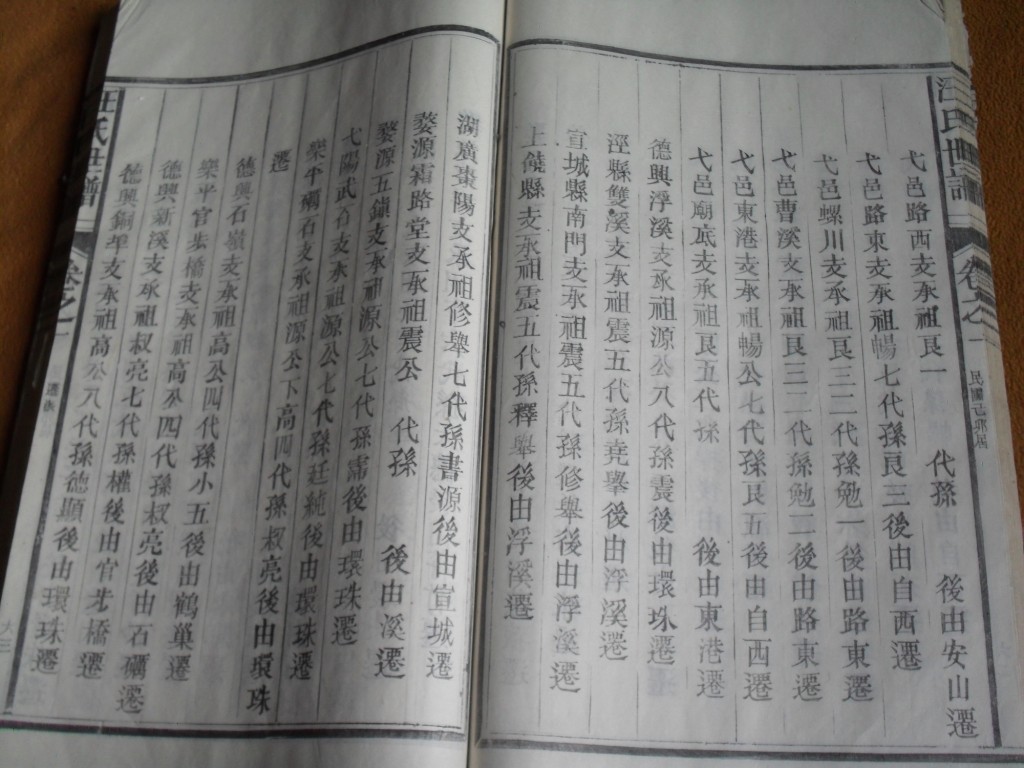 汪氏世譜
卷之一
弋路西支承祖艮一 代孫 後由安山遷
弋邑路東支承祖暢七代孫艮三後由自西遷
弋邑螺川支承祖艮三二代孫勉一後由路東遷
弋邑曹溪支承祖艮三二代孫勉二後由路東遷
弋邑東港支承祖暢公七代孫艮五後由自西遷
弋邑廟底支承祖艮五代孫 後由東港遷
德興浮溪支承祖源公八代孫霙後由環珠遷
涇縣雙溪支承祖震五代孫堯舉後由浮溪遷
宣城縣南門支承祖震五代孫修舉後由浮溪遷
上饒縣支承祖震五代孫釋舉後由浮溪遷
湖廣棗陽支承祖修舉七代孫書源後由宣城遷
婺源霜路堂支承祖震公 代孫 後由溪遷
婺源五鎮支承祖源公七代孫霈後由環珠遷
弋陽武石支承祖源公七代孫廷純後由環珠遷
樂平礪石支承祖源公下高四代孫叔亮後由環珠
遷
德興石嶺支承祖高公四代孫小五後由鶴巢遷
樂平官步橋支承祖高公四代孫叔亮後由石礪遷
德興新溪支承祖叔亮七代孫權後由官步橋遷
德興銅埠支承祖高公八代孫德顯後由環珠遷
汪氏世譜
卷之一